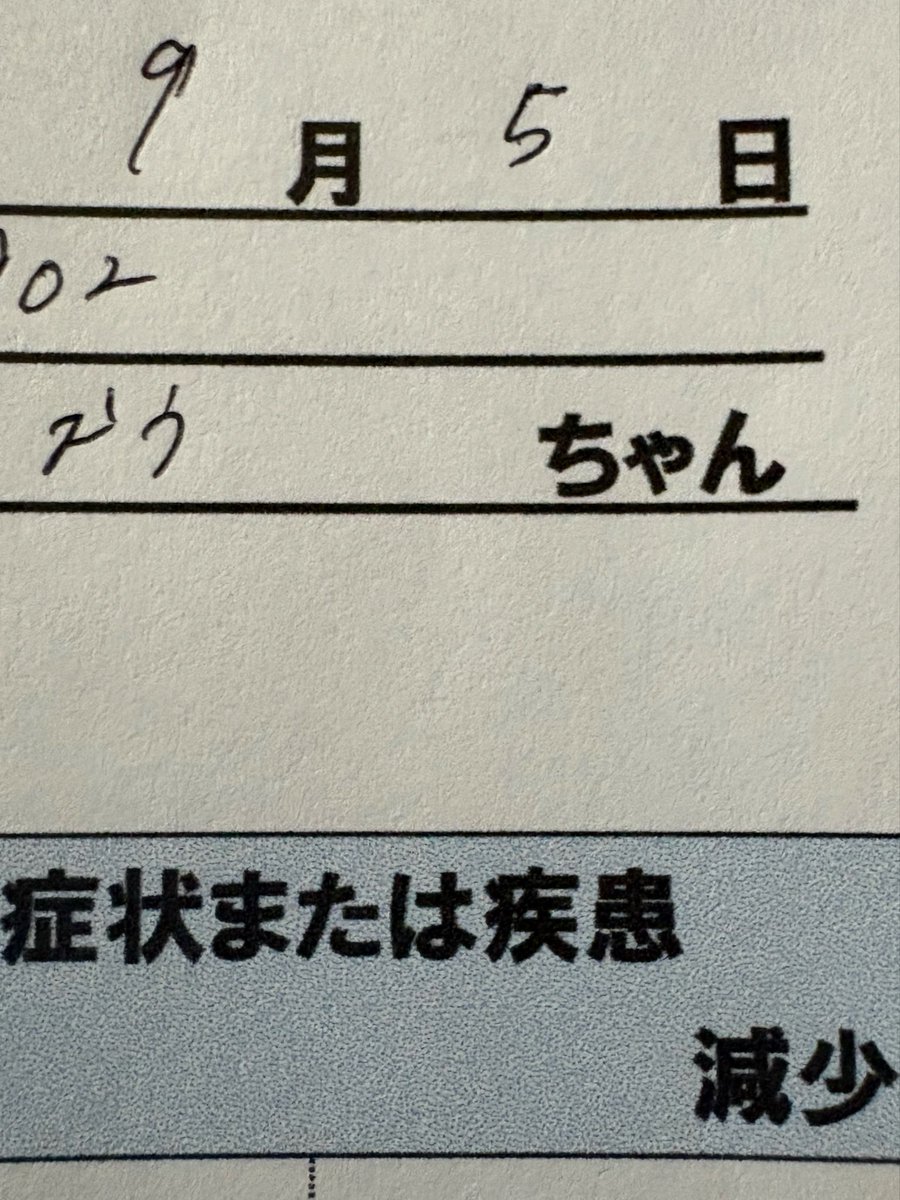 9月5日
02
ちゃん
症状または疾患
減少